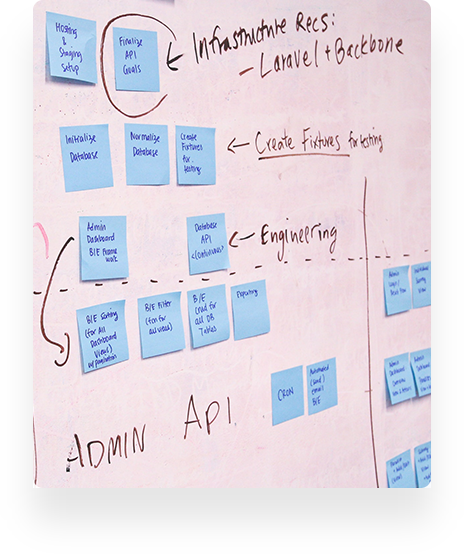 Hosting
&
Staging
Setup
Finalize
API
Goals
Infrastructure Recs:
- Laravel + Backbone
Initialize
Database
Normalize
Database
Create
Fixtures
for
testing
Create Fixtures for testing
Admin
Dashboard
B/E Frame
work
Database
API
<continuous>
Engineering
B/E Sorting
(for All
Dashboard
Views)
w/pagination
B/E Filter
(for
all views)
B/E
Cread for
all DB
Tables
Exporting
CRON
Automated
(send)
email
B/E
ADMIN API
Admin
Admin
Dashboard